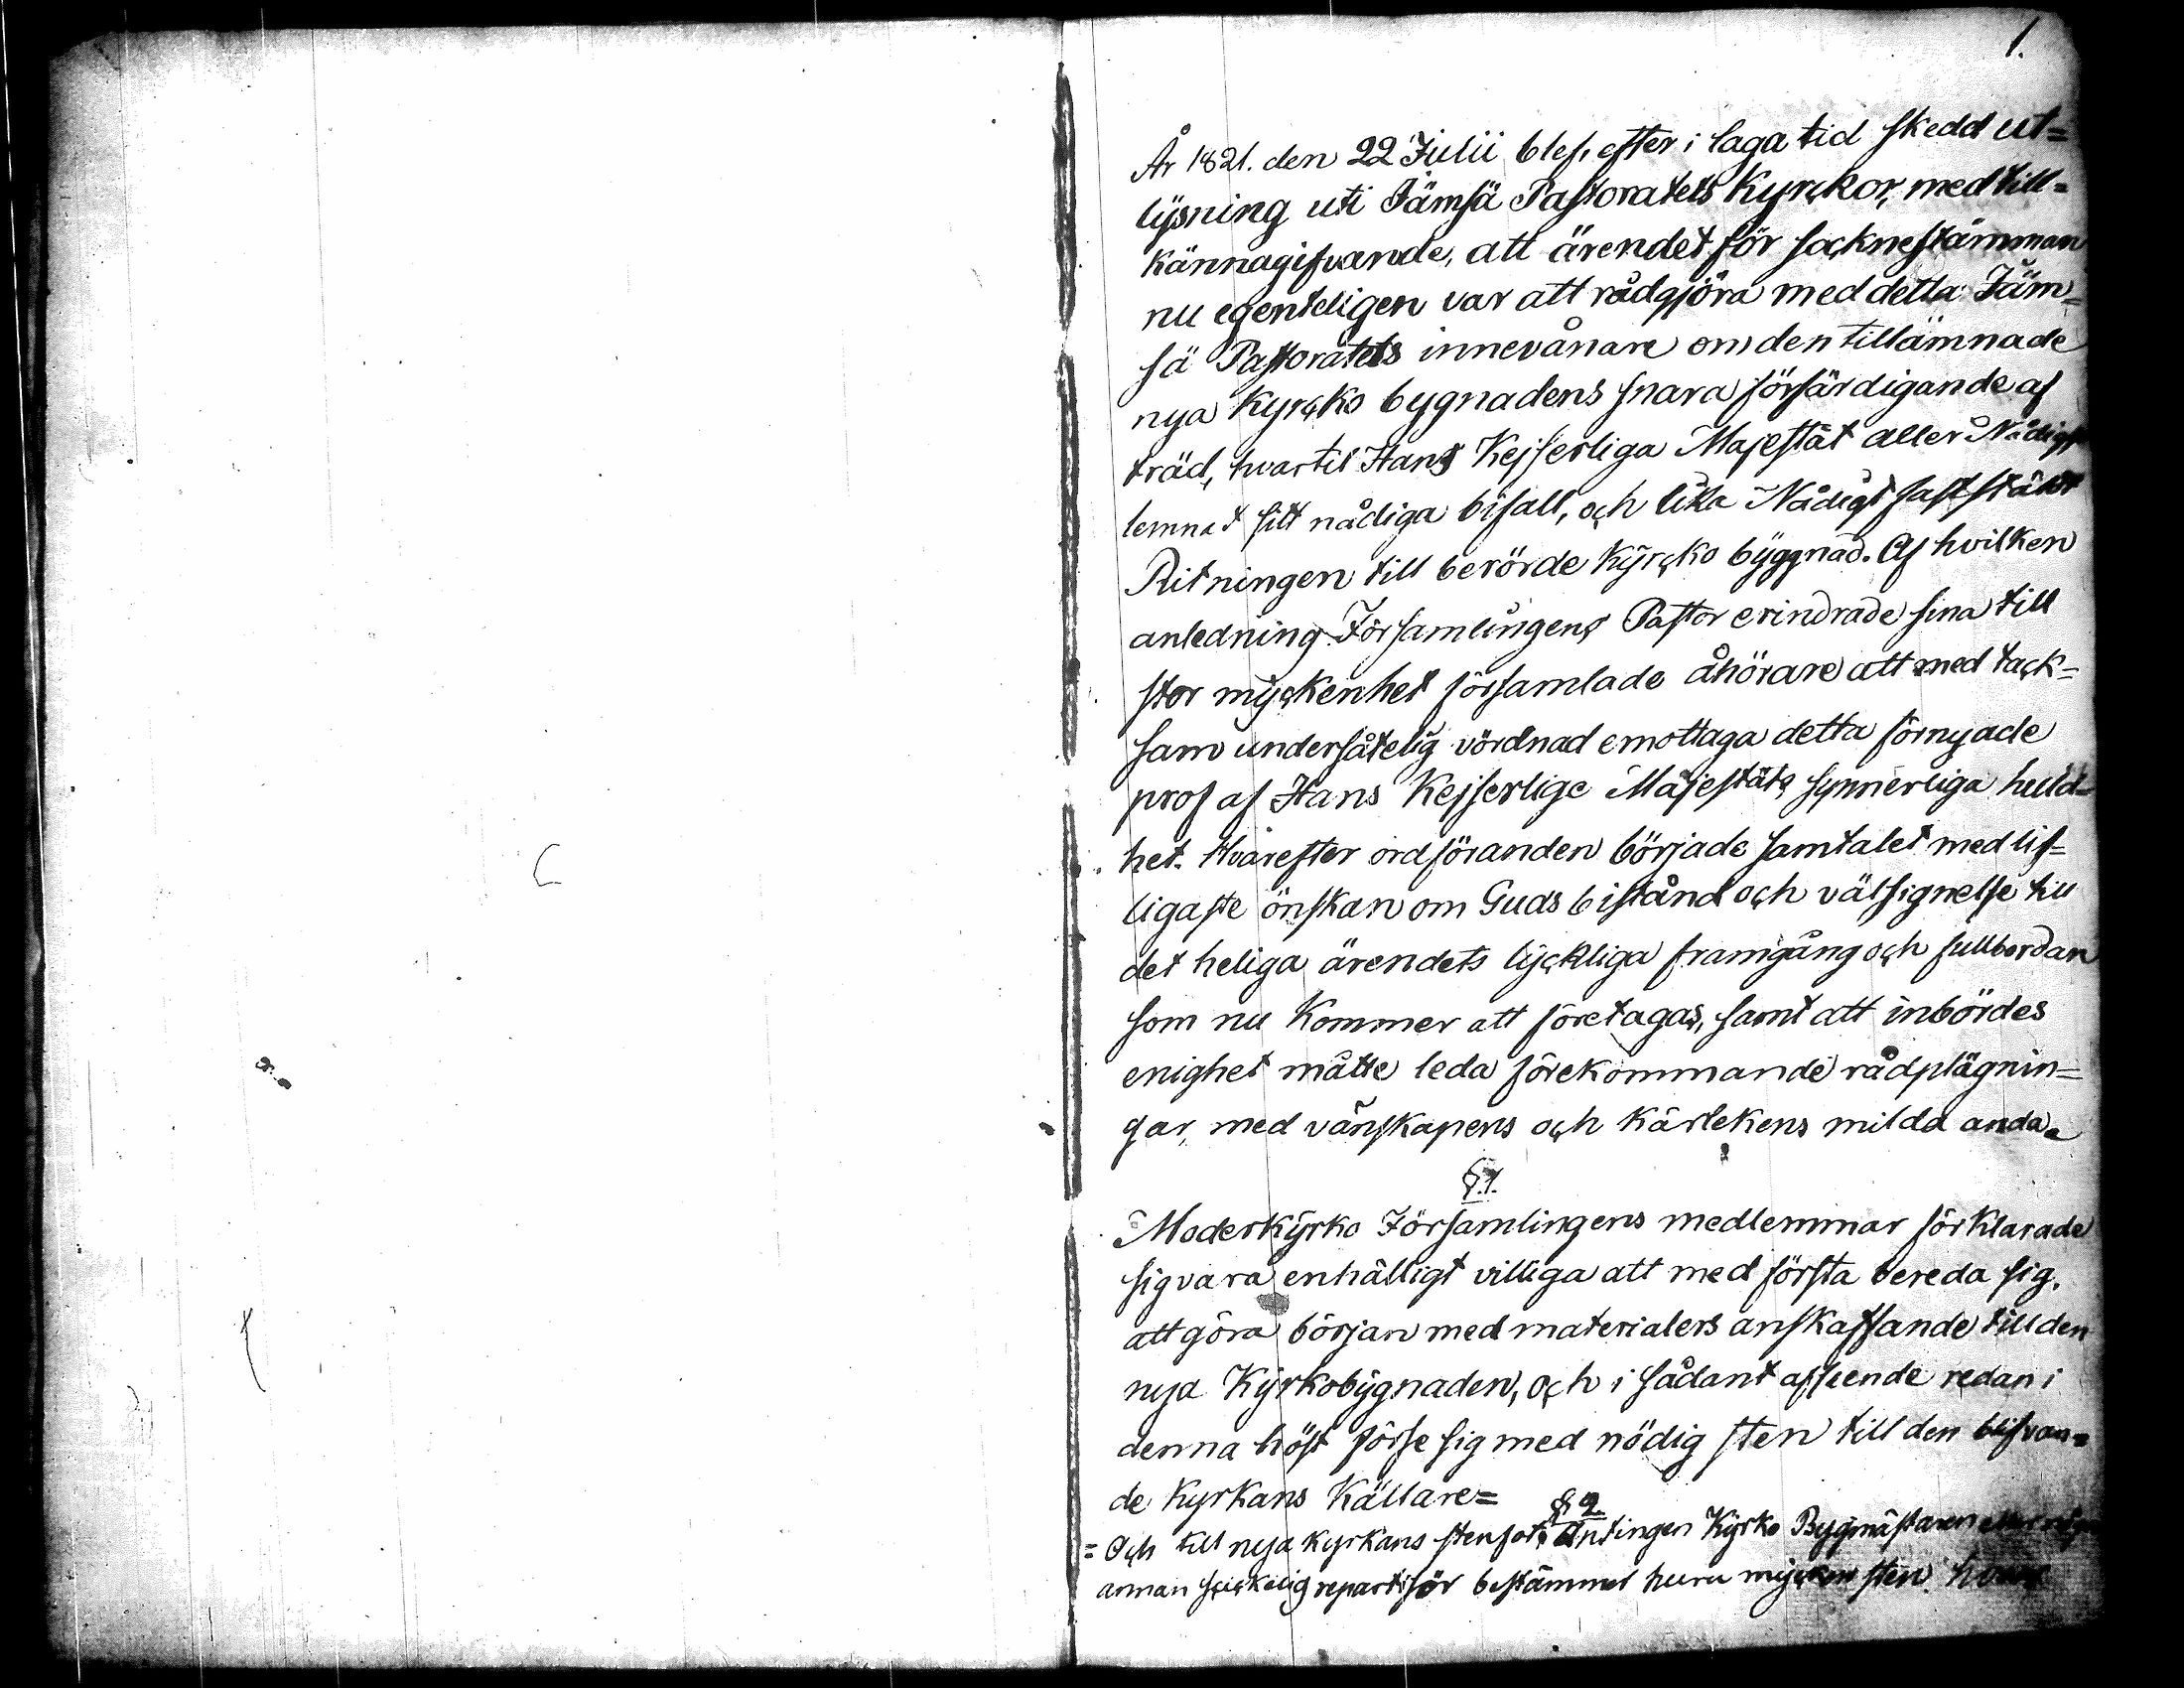 1.
År 1821. den 22 Julii blef, efter i laga tid skedd ut=
lysning uti Jämsä Pastoratets Kyrckor, med till=
kännagifvande, att ärendet för socknestämman
nu egenteligen var att rådgjöra med detta Jäm=
sä Pastoratets innevånare om den tillämnade
nya Kyrcko bygnadens snara förfärdigande af
träd, hvartil Hans Kejserliga Majestät aller Nådigst
lemnat sitt nådiga bifall, och lika Nådigt fastställt
Ritningen till berörde Kyrcko byggnad. Af hvilken
anledning Församlingens Pastor erindrade sina till
stor myckenhet församlade åhörare att med tack=
sam undersåtelig vördnad emottaga detta förnyade
prof af Hans Kejserlige Majestäts synnerliga huld=
het. Hvarefter ordföranden började samtalet med lif=
ligaste önskan om Guds bistånd och välsignelse till
det heliga ärendets lyckliga framgång och fullbordan
som nu Kommer att företagas, samt att inbördes
enighet måtte leda förekommande rådplägnin=
gar, med vänskapens och Kärlekens milda anda.
§.1.
Moderkyrko Församlingens medlemmar förklarade
sig vara enhälligt villiga att med första bereda sig,
att göra början med materialers anskaffande till den
nya Kyrkobygnaden, och i sådant afseende redan i
denna höst förse sig med nödig sten till den blifvan=
de Kyrkans Källare=
§ 2.
= Och till nya kyrkans stenfot. Antingen Kyrko Bygmästaren eller
annan skickelig repartisör bestämmer huru mycken sten hvar